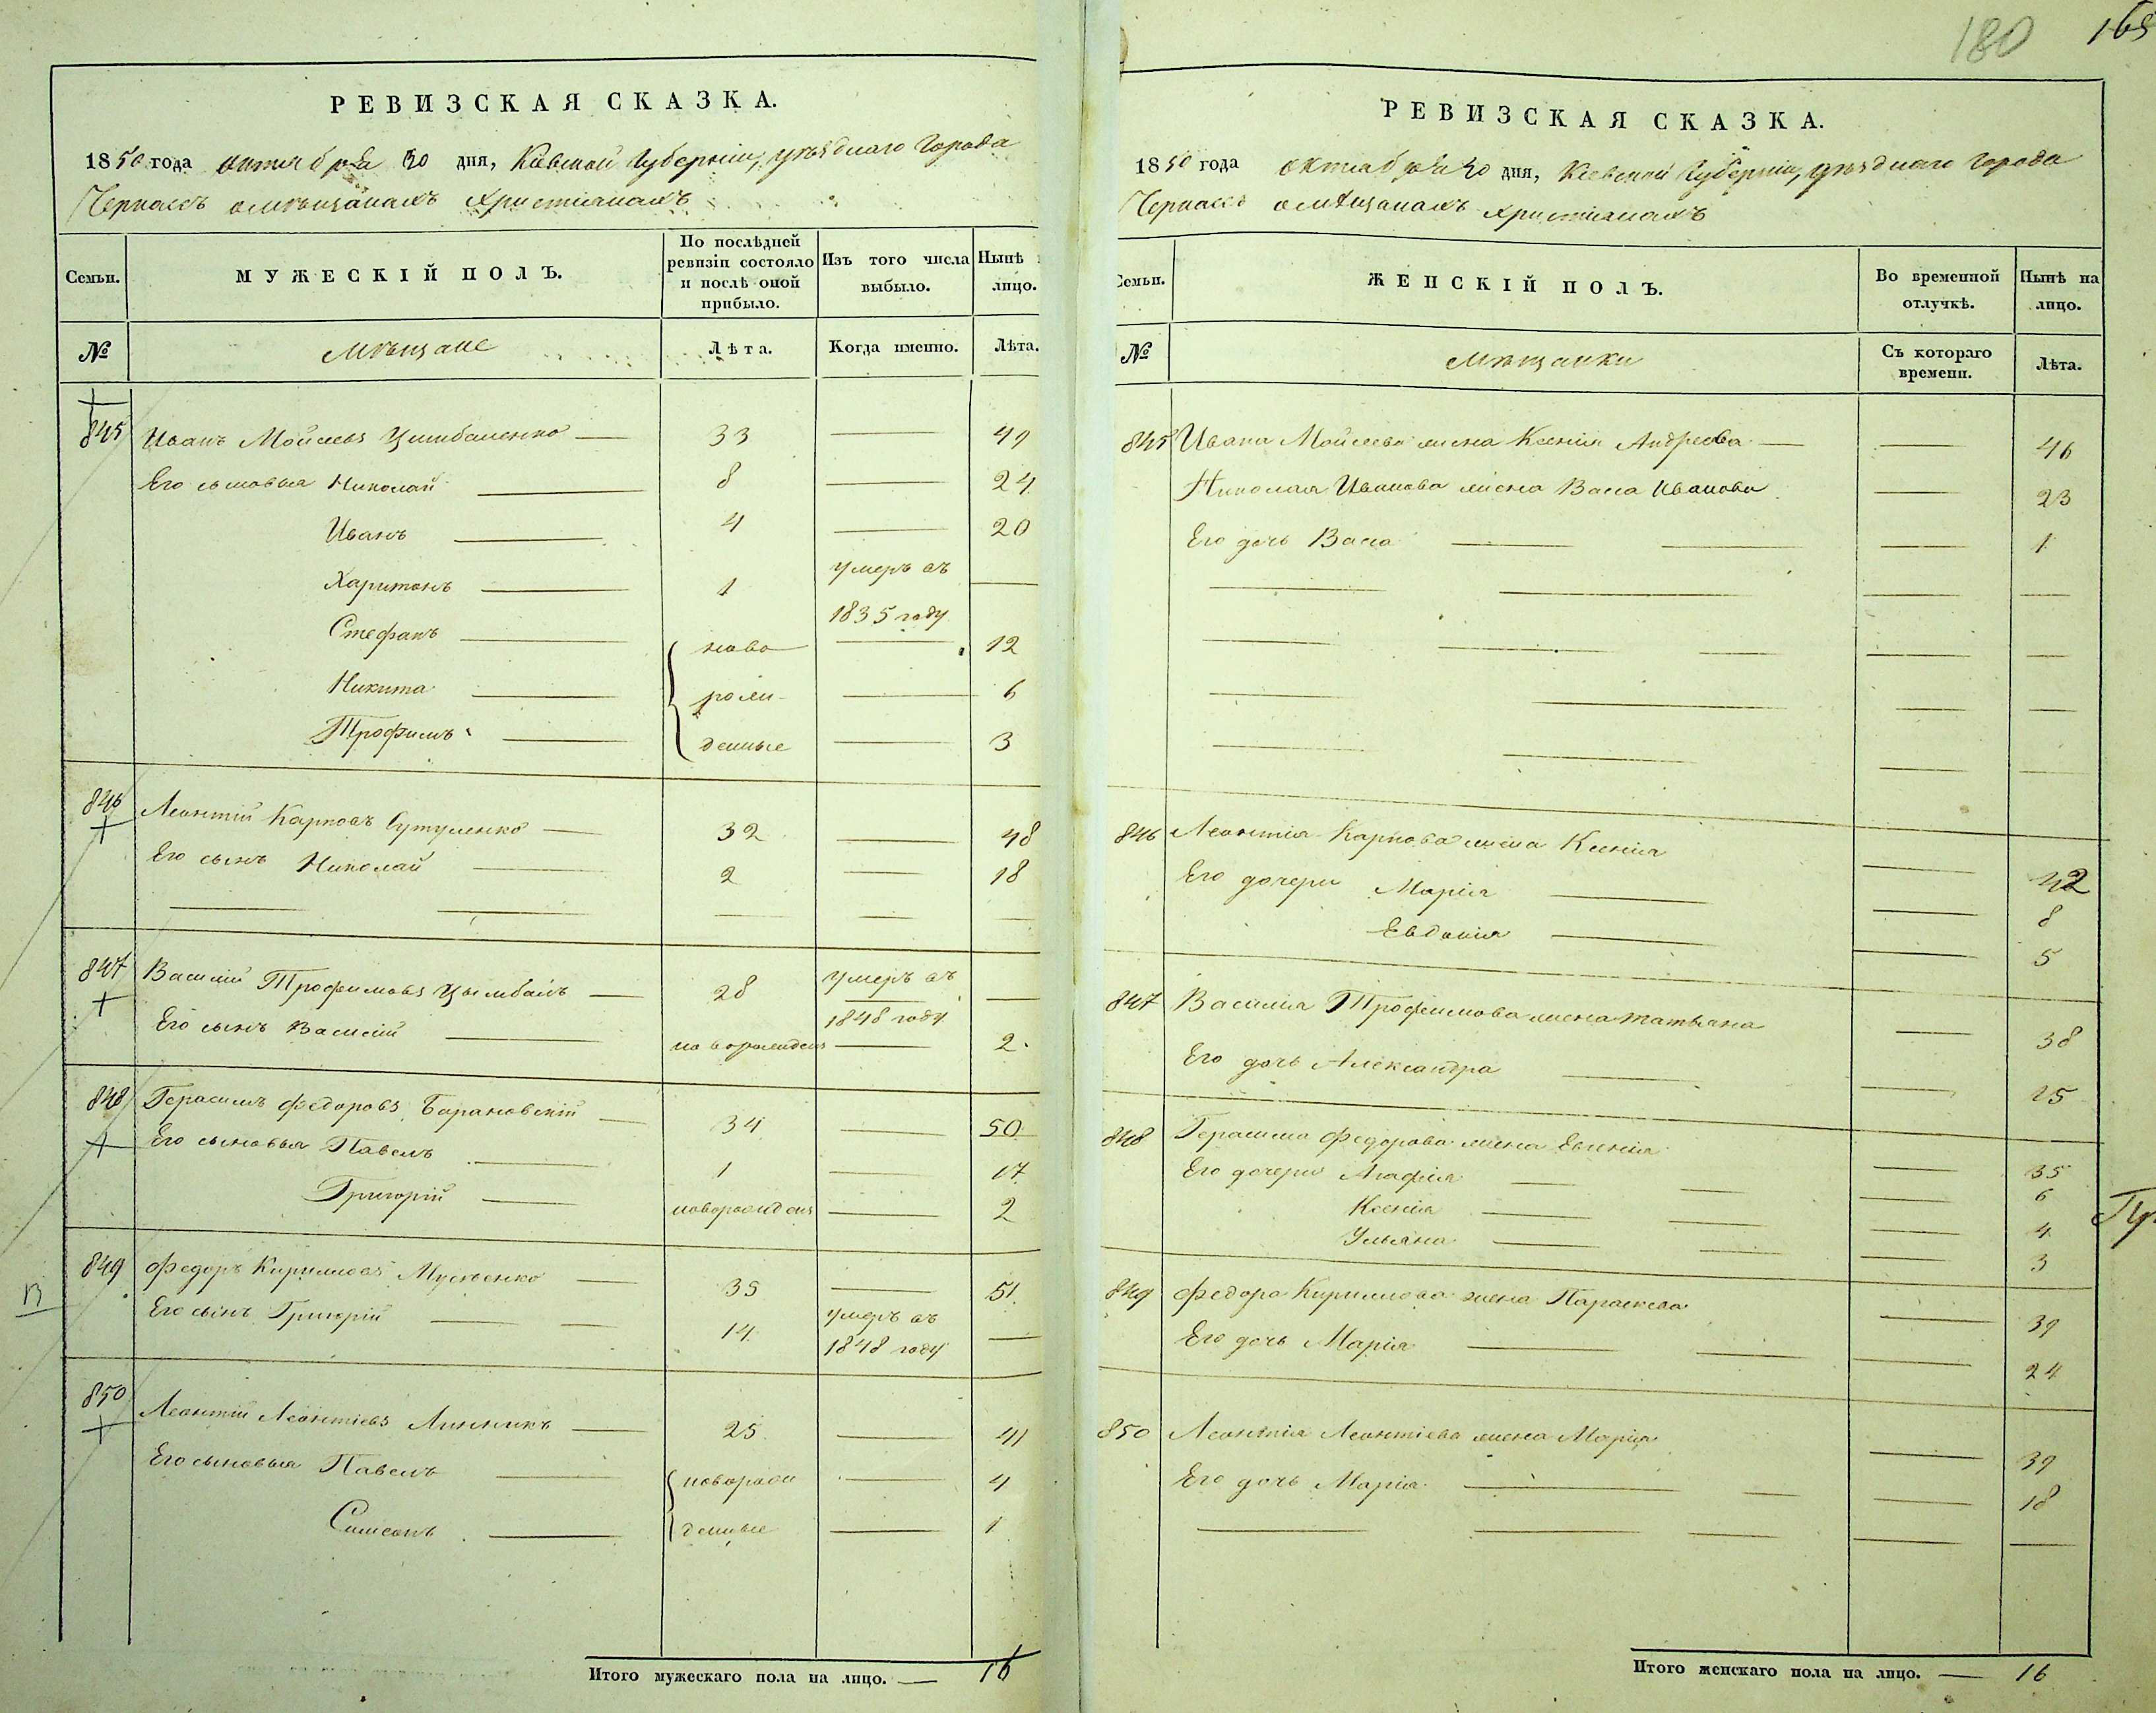 180 165
РЕВИЗСКАЯ СКАЗКА.
1850 года октября 30 дня, Киевской Губернии, уѣзднаго Города
Черкассъ омѣщанахъ христіянахъ
Семьи.
МУЖЕСКІЙ ПОЛЪ.
По послѣдней ревизіи состояло и послѣ оной прибыло.
Изъ того числа выбыло.
Нынѣ
лицо.
№
Мѣщане
Лѣта.
Когда именно.
Лѣта.
845 Иванъ Мойсеевъ Цимбаленко — 33 — 49
Его сыновья Николай — 8 — 24
Иванъ — 4 — 20
Харитонъ — 1 умеръ въ 1835 году —
Стефанъ — ново — 12
Никита — рож- — 6
Трофимъ — денные — 3
846 Леонтій Карповъ Сутуленко — 32 — 48
Его сынъ Николай — 2 — 18
847 Василій Трофимовъ Цымбалъ — 28 умеръ въ 1848 году —
Его сынъ Василій — новорожденъ — 2
848 Герасимъ Федоровъ Барановскій — 34 — 50
Его сыновья Павелъ — 1 — 17
Григорій — новорожденъ — 2
849 Федоръ Кириловъ — 35 — 51
Его сынъ Григорій — — 14 умеръ въ 1848 году —
850 Леонтій Леонтіевъ Линникъ — 25 — 41
Его сыновья Павелъ — новорож — 4
Самсонъ — денные — 1
Итого мужескаго пола на лицо. — 16
РЕВИЗСКАЯ СКАЗКА.
1850 года октября 30 дня, Киевской Губерніи, уѣзднаго Города
Черкассъ омѣщанахъ христіанахъ
Семьи.
ЖЕНСКІЙ ПОЛЪ.
Во временной отлучкѣ.
Нынѣ на лицо.
№
Мѣщанки
Съ котораго времени.
Лѣта.
845 Ивана Мойсеева жена Ксенія Андреева — — 46
Николая Иванова жена Васса Иванова — 23
Его дочь Васса — — — 1
846 Леонтія Карпова жена Ксенія — 42
Его дочери Марія — — 8
Евдокія — — 5
847 Василія Трофимова жена Татьяна — 38
Его дочь Александра — — 15
848 Герасима Федорова жена Евгенія — 35
Его дочери Агафія — — — 6
Ксенія — — — 4
Ульяна — — — 3
849 Федора Кирилова жена Параскева — 39
Его дочь Марія — — — 24
850 Леонтія Леонтіева жена Марія — 39
Его дочь Марія — — — 18
Итого женскаго пола на лицо. — 16